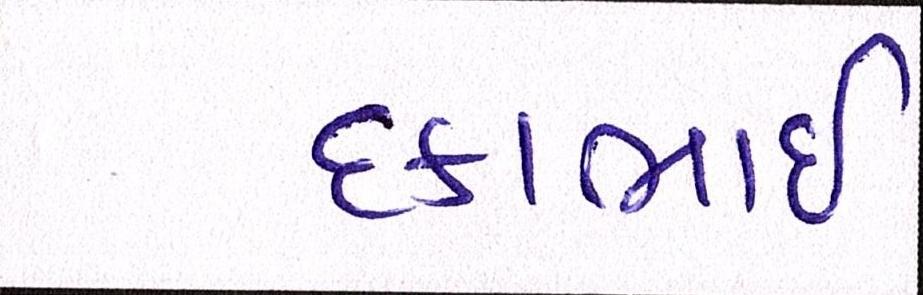 દકાભાઈ